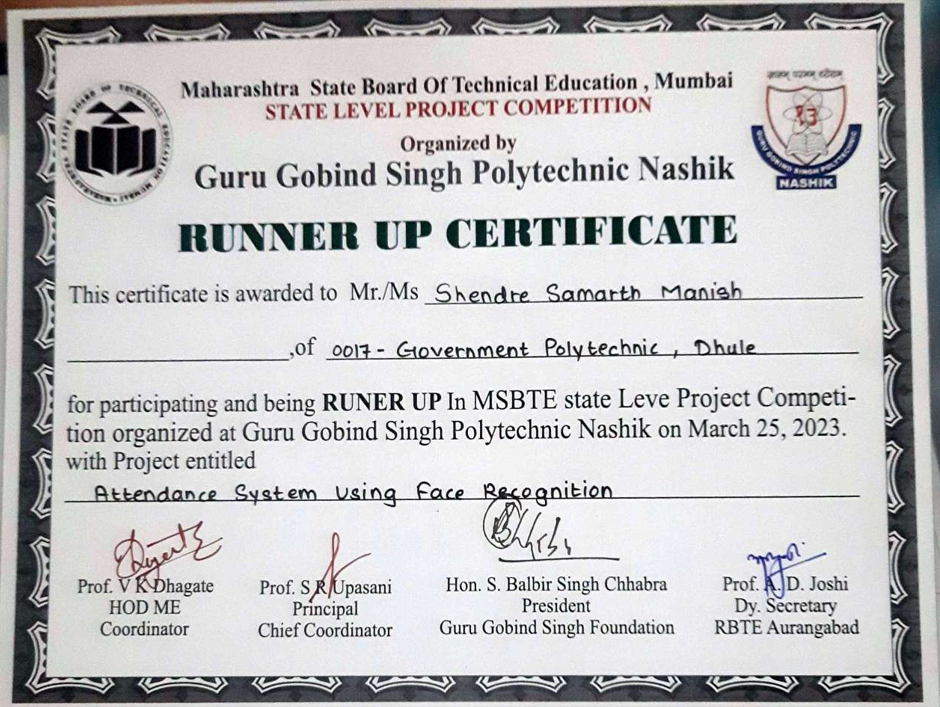 Maharashtra State Board Of Technical Education , Mumbai
STATE LEVEL PROJECT COMPETITION
Organized by
Guru Gobind Singh Polytechnic Nashik
GURU GOBIND SINGH POLYTECHNIC
NASHIK
RUNNER UP CERTIFICATE
This certificate is awarded to Mr./Ms Shendre Samarth Manish
,of 0017 - Government Polytechnic , Dhule
for participating and being RUNER UP In MSBTE state Leve Project Competi-
tion organized at Guru Gobind Singh Polytechnic Nashik on March 25, 2023.
with Project entitled
Attendance System Using Face Recognition
Prof. V K Dhagate
HOD ME
Coordinator
Prof. S R Upasani
Principal
Chief Coordinator
Hon. S. Balbir Singh Chhabra
President
Guru Gobind Singh Foundation
Prof. A. D. Joshi
Dy. Secretary
RBTE Aurangabad